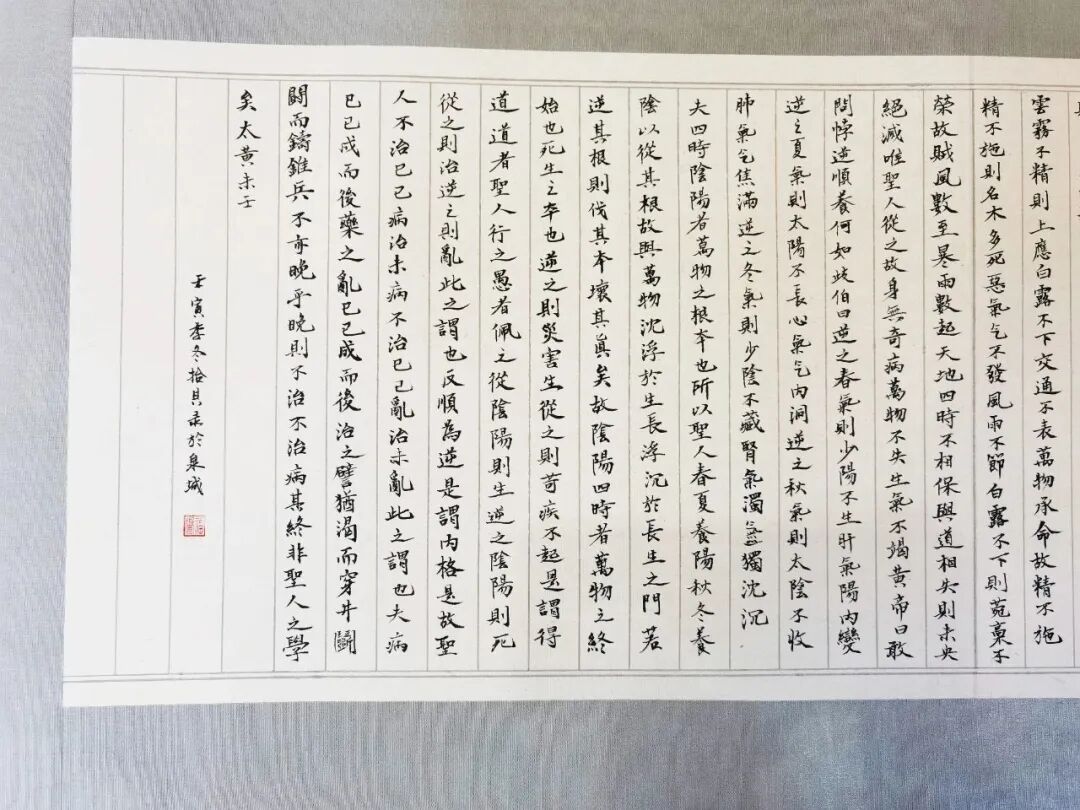 雲霧不精則上應白露不下交通不表萬物承命故精不施
精不施則名木多死惡氣气不發風雨不節白露不下則菀稾不
榮故賊風數至暴雨數起天地四時不相保與道相失則未央
絕滅唯聖人從之故身無奇病萬物不失生氣不竭黃帝曰敢
問悖逆順養何如歧伯曰逆之春氣則少陽不生肝氣陽內變
逆之夏氣則太陽不長心氣气內洞逆之秋氣則太陰不收
肺氣气焦滿逆之冬氣則少陰不藏腎氣濁獨沈沉
夫四時陰陽者萬物之根本也所以聖人春夏養陽秋冬養
陰以從其根故與萬物沈浮於生長浮沉於長生之門若
逆其根則伐其本壞其眞矣故陰陽四時者萬物之終
始也死生之本也逆之則災害生從之則苛疾不起是謂得
道道者聖人行之愚者佩之從陰陽則生逆之陰陽則死
從之則治逆之則亂此之謂也反順為逆是謂內格是故聖
人不治已已病治未病不治已已亂治未亂此之謂也夫病
已已成而後藥之亂已已成而後治之譬猶渴而穿井鬭
闘而鑄錐兵不亦晚乎晚則不治不治病其終非聖人之學
矣太黃未壬
壬寅季冬拾貝录於泉城